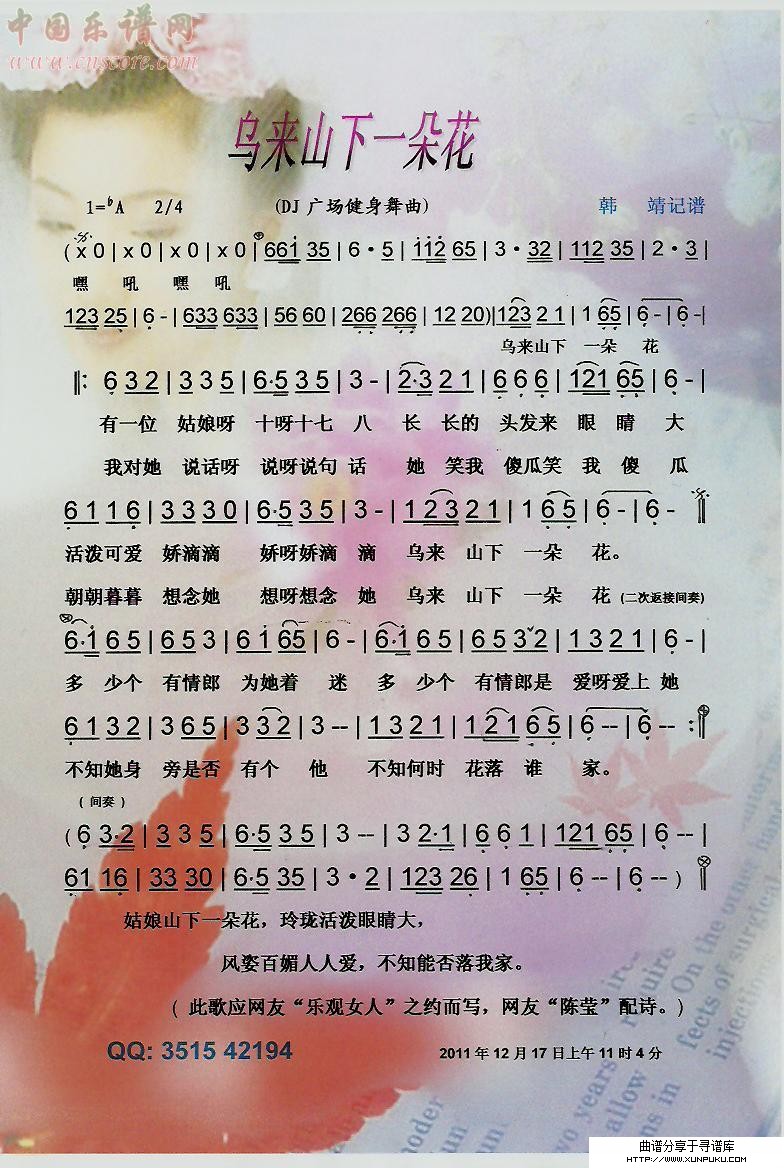 中国乐谱网
www.cnscore.com
乌来山下一朵花
1=♭A 2/4 (DJ 广场健身舞曲) 韩 靖记谱
( x 0 | x 0 | x 0 | x 0 | 661 35 | 6 · 5 | 112 65 | 3 · 32 | 112 35 | 2 · 3 |
嘿 吼 嘿 吼
123 25 | 6 - | 633 633 | 56 60 | 266 266 | 12 20 ) | 123 2 1 | 1 65 | 6 - | 6 - |
乌来山下 一朵 花
‖: 6 3 2 | 3 3 5 | 6·5 3 5 | 3 - | 2·3 2 1 | 6 6 6 | 121 65 | 6 - |
有一位 姑娘呀 十呀十七 八 长 长的 头发来 眼 睛 大
我对她 说话呀 说呀说句 话 她 笑我 傻瓜笑 我 傻 瓜
6 1 1 6 | 3 3 3 0 | 6·5 3 5 | 3 - | 1 2 3 2 1 | 1 6 5 | 6 - | 6 - ‖
活泼可爱 娇滴滴 娇呀娇滴 滴 乌来 山下 一朵 花。
朝朝暮暮 想念她 想呀想念 她 乌来 山下 一朵 花 (二次返接间奏)
6·1 6 5 | 6 5 3 | 6 1 6 5 | 6 - | 6·1 6 5 | 6 5 3 2 | 1 3 2 1 | 6 - |
多 少个 有情郎 为她着 迷 多 少个 有情郎是 爱呀爱上 她
6 1 3 2 | 3 6 5 | 3 3 2 | 3 -- | 1 3 2 1 | 1 2 1 6 5 | 6 -- | 6 -- :‖
不知她身 旁是否 有个 他 不知何时 花落 谁 家。
( 间奏 )
( 6 3·2 | 3 3 5 | 6·5 3 5 | 3 -- | 3 2·1 | 6 6 1 | 121 65 | 6 -- |
61 16 | 33 30 | 6·5 35 | 3 · 2 | 123 26 | 1 65 | 6 -- | 6 -- ) ‖
姑娘山下一朵花，玲珑活泼眼睛大，
风姿百媚人人爱，不知能否落我家。
( 此歌应网友“乐观女人”之约而写，网友“陈莹”配诗。)
QQ: 3515 42194 2011 年 12 月 17 日上午 11 时 4 分
曲谱分享于寻谱库
HTTP://WWW.XUNPUKU.COM